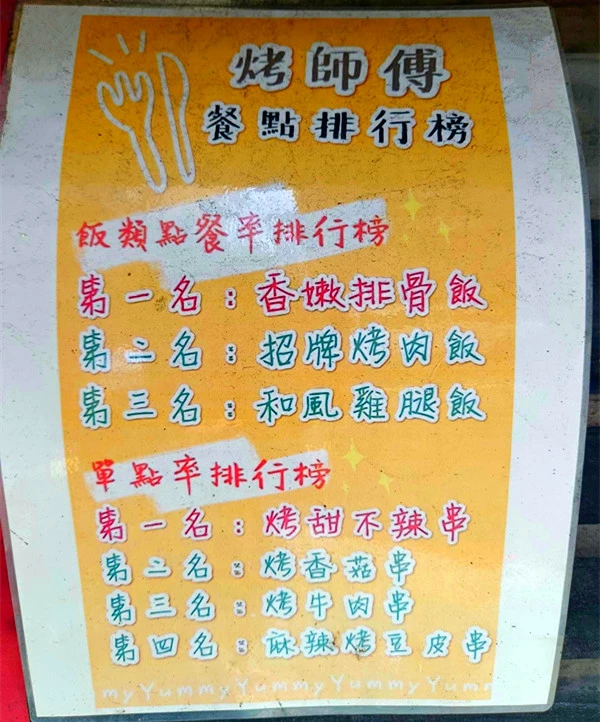 烤師傅
餐點排行榜
飯類點餐率排行榜
第一名：香嫩排骨飯
第二名：招牌烤肉飯
第三名：和風雞腿飯
單點率排行榜
第一名：烤甜不辣串
第二名：烤香菇串
第三名：烤牛肉串
第四名：麻辣烤豆皮串
my Yummy Yummy Yummy Yumm